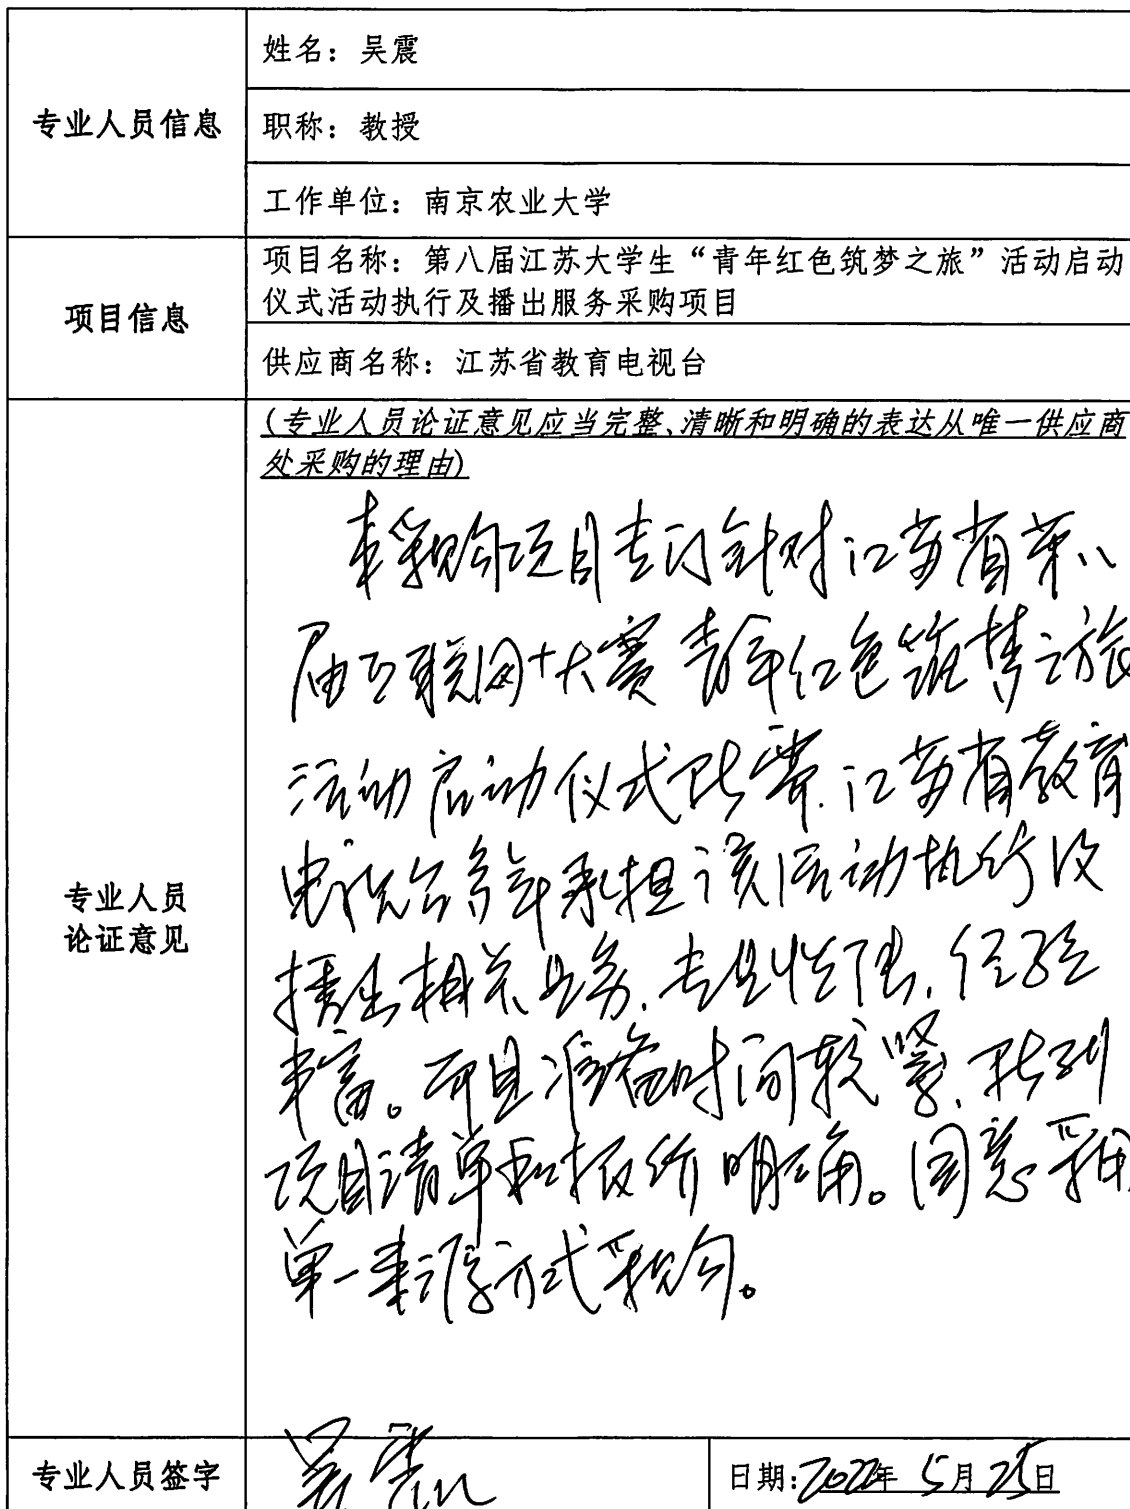 专业人员信息
姓名：吴震
职称：教授
工作单位：南京农业大学
项目信息
项目名称：第八届江苏大学生“青年红色筑梦之旅”活动启动
仪式活动执行及播出服务采购项目
供应商名称：江苏省教育电视台
专业人员
论证意见
(专业人员论证意见应当完整、清晰和明确的表达从唯一供应商
处采购的理由)
本采购项目专门针对江苏省第八
届互联网+大赛青年红色筑梦之旅
活动启动仪式所需.江苏省教育
电视台多年承担该活动执行及
播出相关业务,专业性强,经验
丰富。而且准备时间较紧,所列
项目清单和报价明确。同意采用
单一来源方式采购。
专业人员签字
吴震
日期:2022年 5月25日